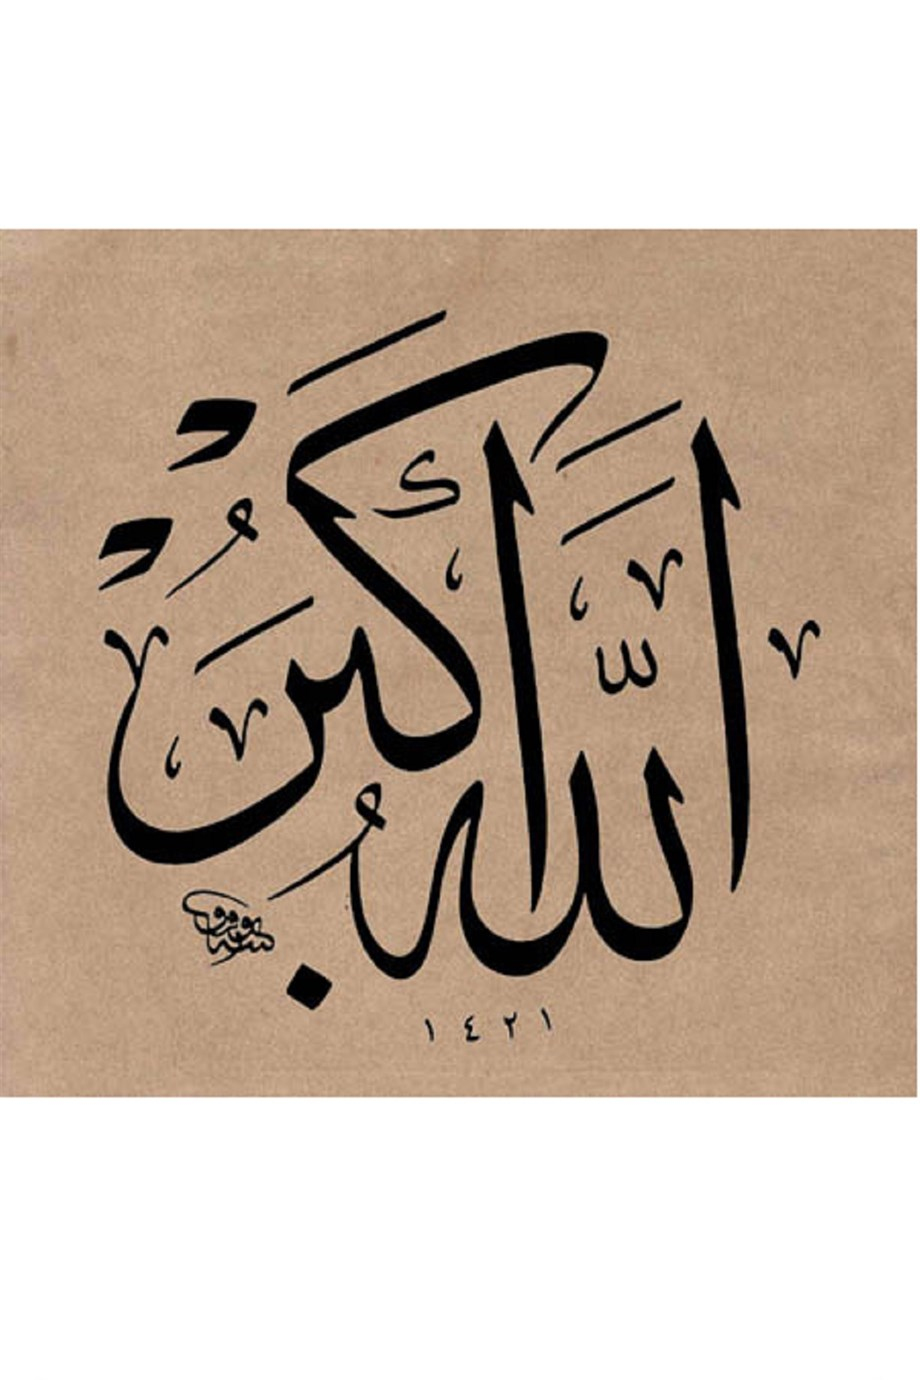 اَللّٰهُ أَكْبَرُ
١٤٢١